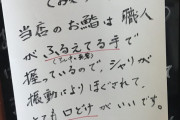 当店のお鮨は職人
がふるえてる手で
握っているので、シャリが
振動によりほぐれて、
とても口どけがいいです。